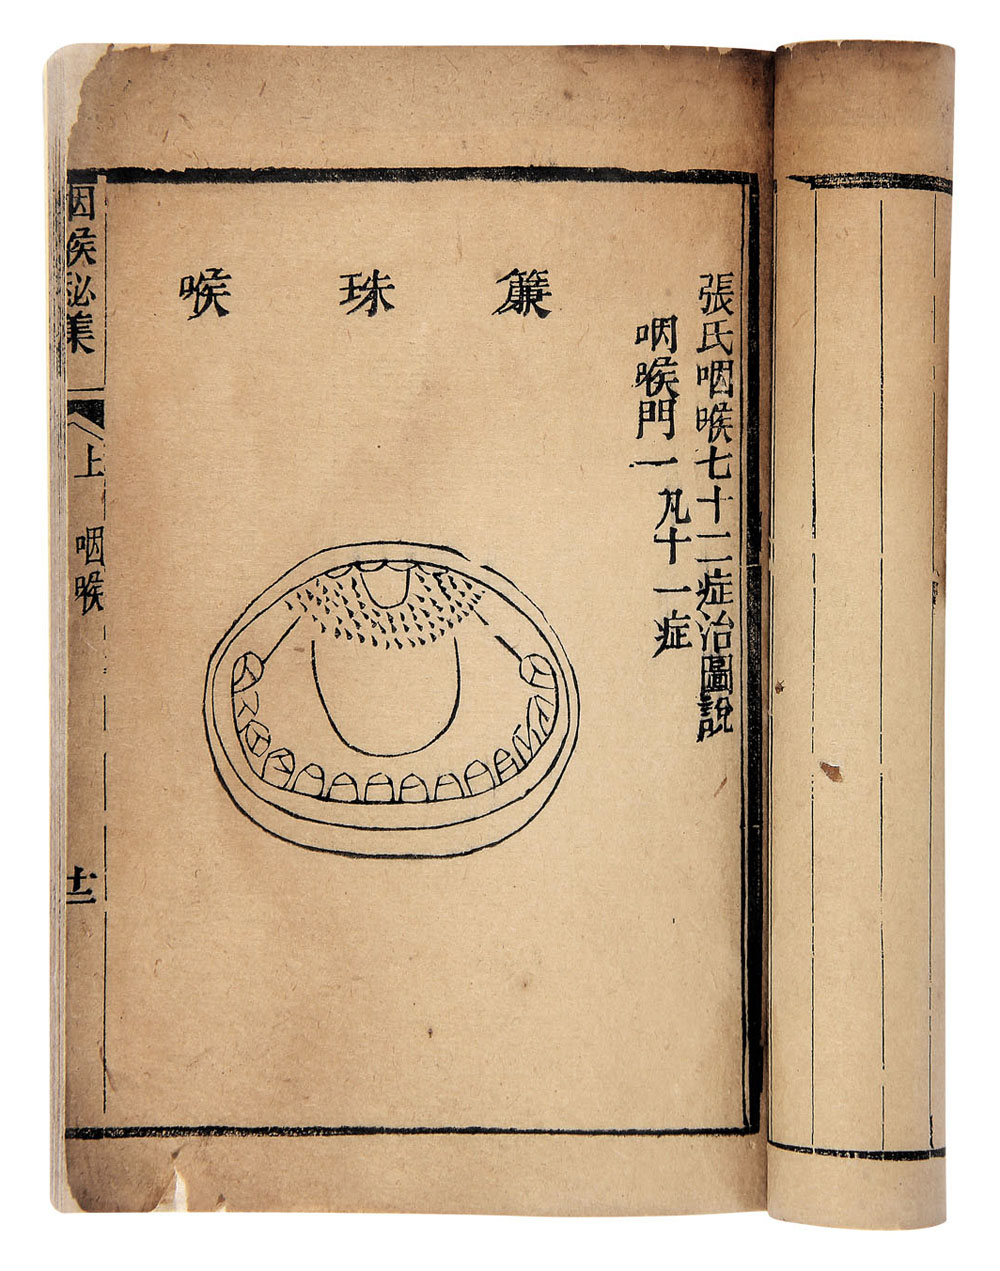 張氏咽喉七十二症治圖說
咽喉門一 凡十一症
簾珠喉
咽喉秘集
上 咽喉
十二